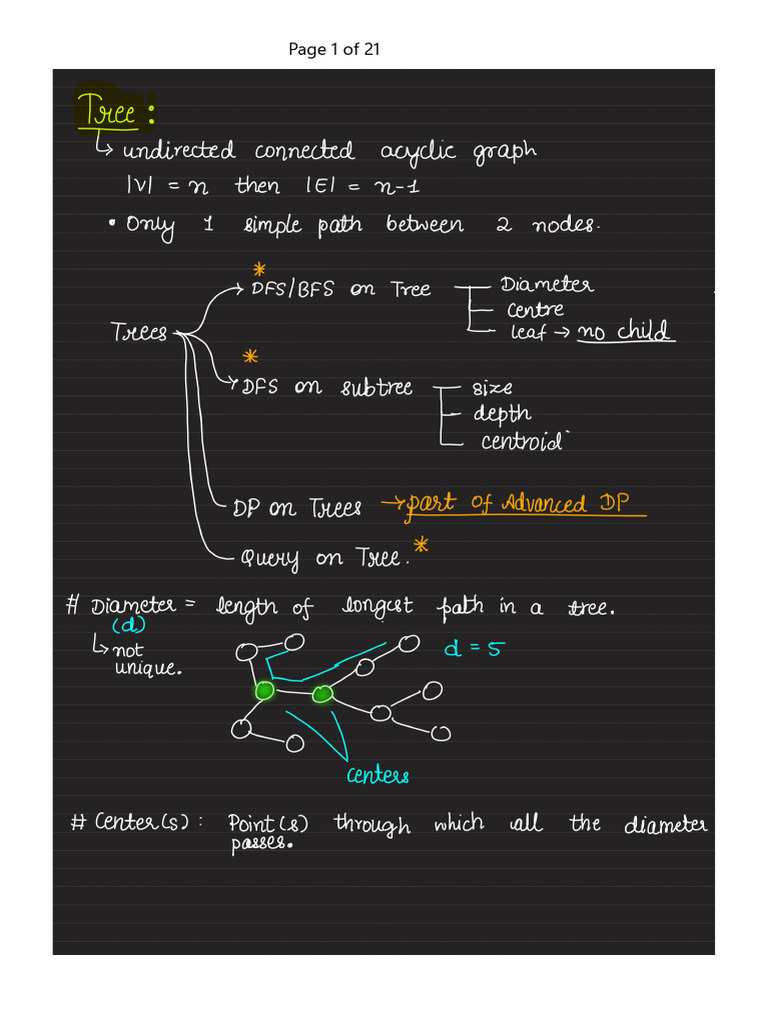 Page 1 of 21
Tree :
↳ undirected connected acyclic graph
|V| = n then |E| = n-1
• Only 1 simple path between 2 nodes.
*
→ DFS/BFS on Tree
Diameter
centre
leaf → no child
Trees
*
→ DFS on subtree
size
depth
centroid
DP on Trees → part of Advanced DP
Query on Tree. *
# Diameter = length of longest path in a tree.
(d)
↳ not
unique.
d = 5
centers
# Center(s) : Point(s) through which all the diameter
passes.